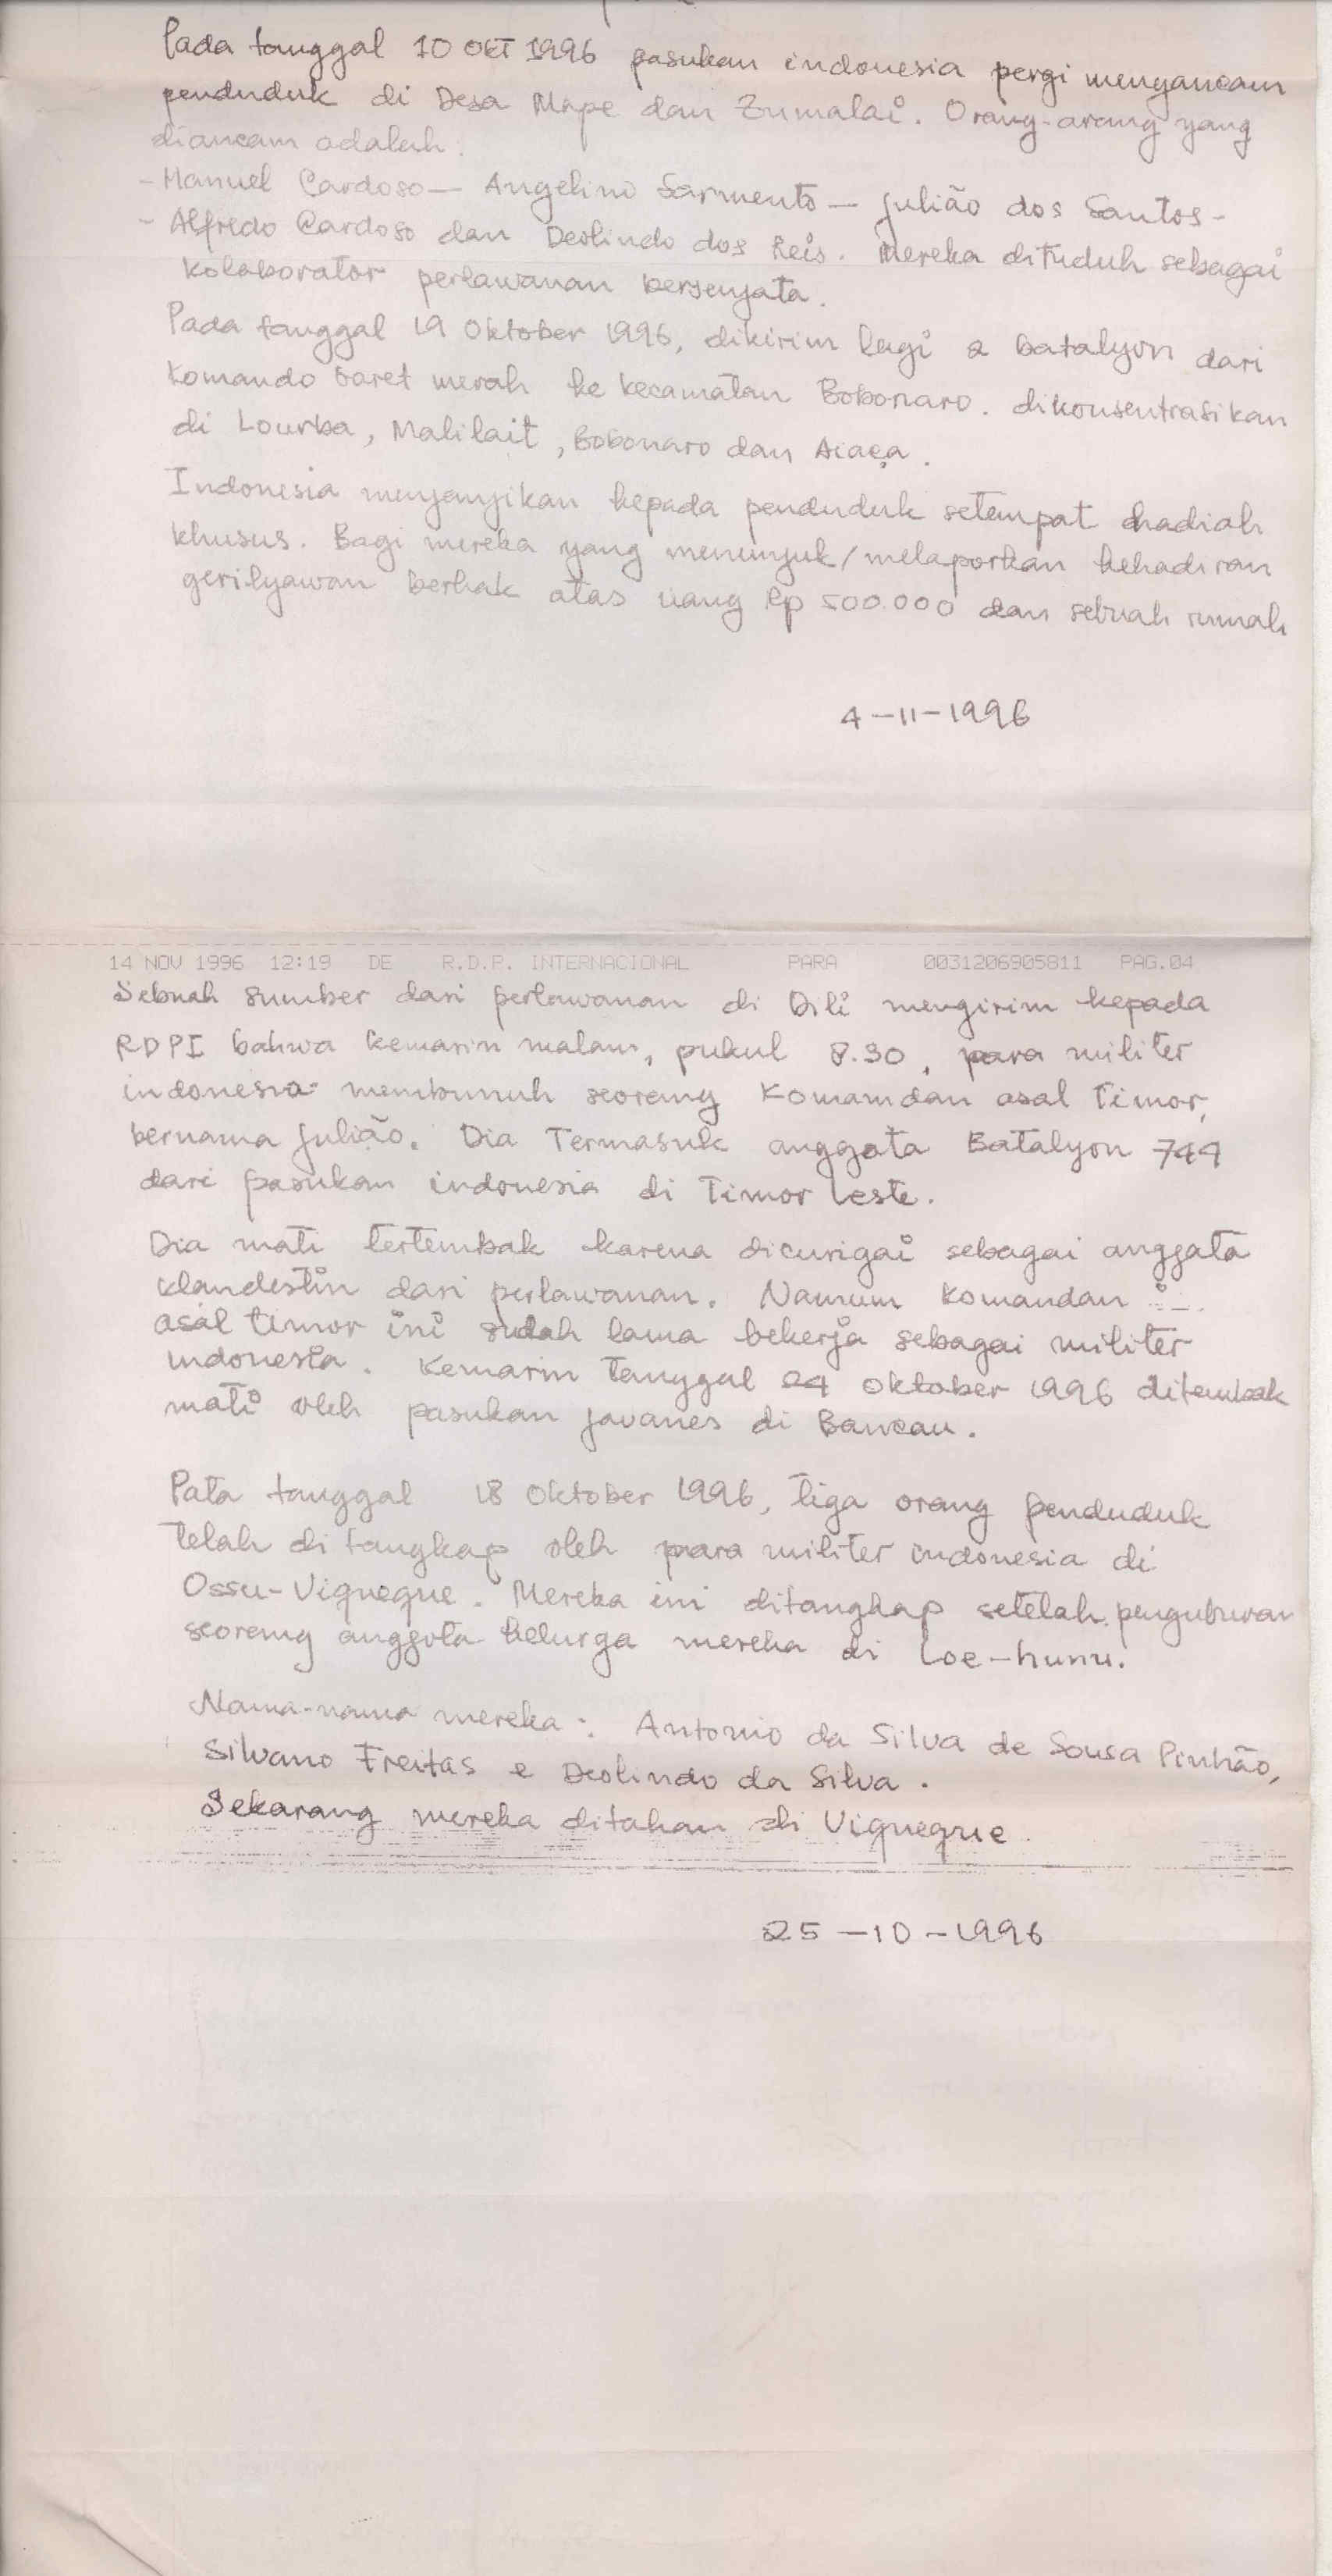 Pada tanggal 10 OKT 1996 pasukan indonesia pergi mengancam
penduduk di Desa Mape dan Zumalai. Orang-orang yang
diancam adalah.
- Manuel Cardoso — Angelino Sarmento — Julião dos Santos -
- Alfredo Cardoso dan Deolindo dos Reis. Mereka dituduh sebagai
kolaborator perlawanan bersenjata.
Pada tanggal 19 Oktober 1996, dikirim lagi 2 batalyon dari
Komando baret merah ke kecamatan Bobonaro. dikonsentrasikan
di Lourba, Malilait, Bobonaro dan Aiaça.
Indonesia menjanjikan kepada penduduk setempat hadiah
khusus. Bagi mereka yang menunjuk/melaporkan kehadiran
gerilyawan berhak atas uang Rp 500.000 dan sebuah rumah
4-11-1996
14 NOV 1996 12:19 DE R.D.P. INTERNACIONAL PARA 0031206905811 PAG.04
Sebuah sumber dari perlawanan di Dili mengirim kepada
RDPI bahwa kemarin malam, pukul 8.30, para militer
indonesia membunuh seorang Komamdan asal Timor,
bernama Julião. Dia Termasuk anggota Batalyon 744
dari pasukan indonesia di Timor Leste.
Dia mati tertembak karena dicurigai sebagai anggata
klandestin dari perlawanan. Namum Komandan
asal timor ini sudah lama bekerja sebagai militer
indonesia. Kemarin tanggal 24 Oktober 1996 ditembak
mati oleh pasukan javanes di Baucau.
Pata tanggal 18 Oktober 1996, tiga orang penduduk
telah di tangkap oleh para militer indonesia di
Ossu-Viqueque. Mereka ini ditangkap setelah penguburan
seorang anggota kelurga mereka di Loe-hunu.
Nama-nama mereka: Antonio da Silva de Sousa Pinhão,
Silvano Freitas e Deolindo da Silva.
Sekarang mereka ditahan di Viqueque
25-10-1996